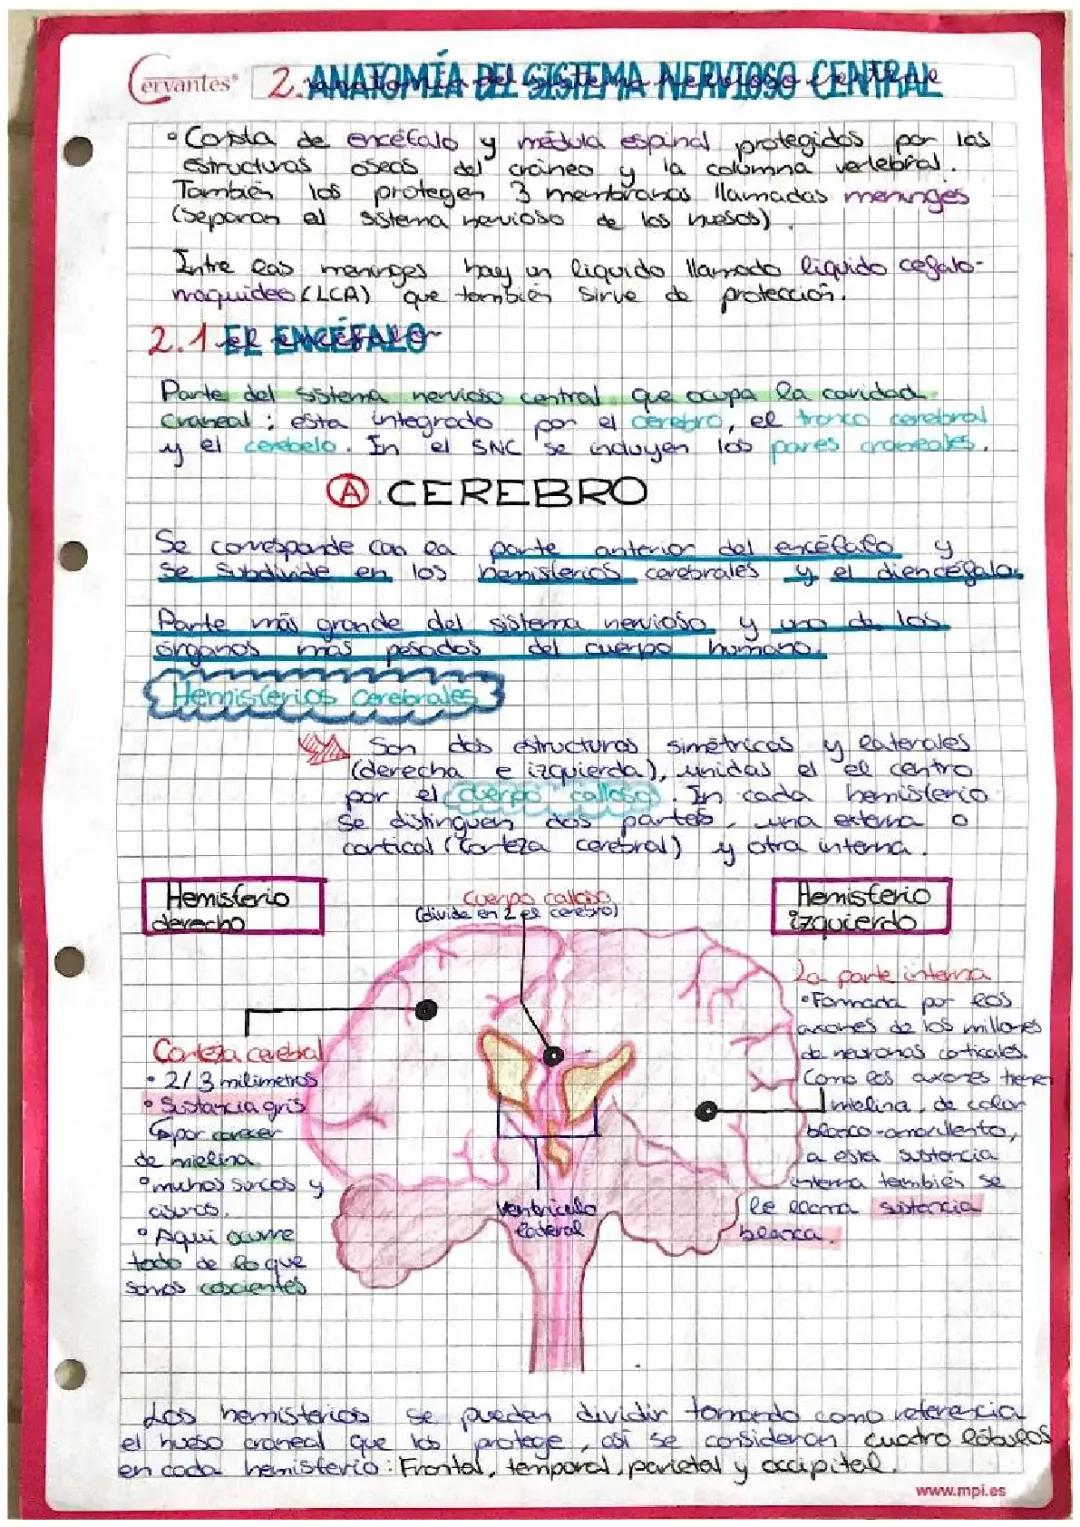 Cervantes®
2. ANATOMÍA DEL SISTEMA NERVIOSO CENTRAL
• Consta de encéfalo y médula espinal protegidos por las
estructuras oseas del cráneo y la columna vertebral.
También los protegen 3 membranas llamadas meninges
(separan el sistema nervioso de los huesos).
Entre las meninges hay un líquido llamado líquido cefalo-
rraquideo (LCA) que también sirve de protección.
2.1 EL ENCÉFALO
Parte del sistema nervioso central que ocupa la cavidad
craneal; esta integrado por el cerebro, el tronco cerebral
y el cerebelo. En el SNC se incluyen los pares craneales.
A. CEREBRO
Se corresponde con la parte anterior del encéfalo y
se subdivide en los hemisferios cerebrales y el diencéfalo.
Parte más grande del sistema nervioso y uno de los
órganos más pesados del cuerpo humano.
Hemisferios cerebrales
Son dos estructuras simétricas y laterales
(derecha e izquierda), unidas el el centro
por el cuerpo calloso. En cada hemisferio
se distinguen dos partes, una externa o
cortical (corteza cerebral) y otra interna.
Hemisferio
derecho
Cuerpo calloso
(divide en 2 el cerebro)
Hemisferio
izquierdo
Corteza cerebral
• 2/3 milimetros
• Sustancia gris
por carecer
de mielina
• muchos surcos y
cisuras.
• Aqui ocurre
todo de lo que
somos conscientes
Ventriculo
lateral
La parte interna
• Formada por los
axones de los millones
de neuronas corticales.
Como los axones tienen
mielina, de color
blanco-amarillento,
a esta sustancia
interna también se
le llama sustancia
blanca.
Los hemisferios se pueden dividir tomando como referencia
el hueso craneal que los protege, así se consideran cuatro lóbulos
en cada hemisferio: Frontal, temporal, parietal y occipital.
www.mpi.es